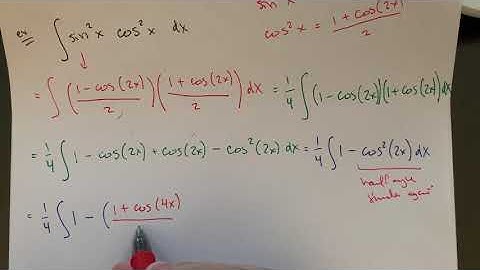 sin² x
ex ∫ sin² x cos² x dx
cos² x = 1 + cos(2x) / 2
= ∫ (1 - cos(2x) / 2)(1 + cos(2x) / 2) dx = 1/4 ∫ (1 - cos(2x))(1 + cos(2x)) dx
= 1/4 ∫ 1 - cos(2x) + cos(2x) - cos²(2x) dx = 1/4 ∫ 1 - cos²(2x) dx
half angle
= 1/4 ∫ 1 - (1 + cos(4x)